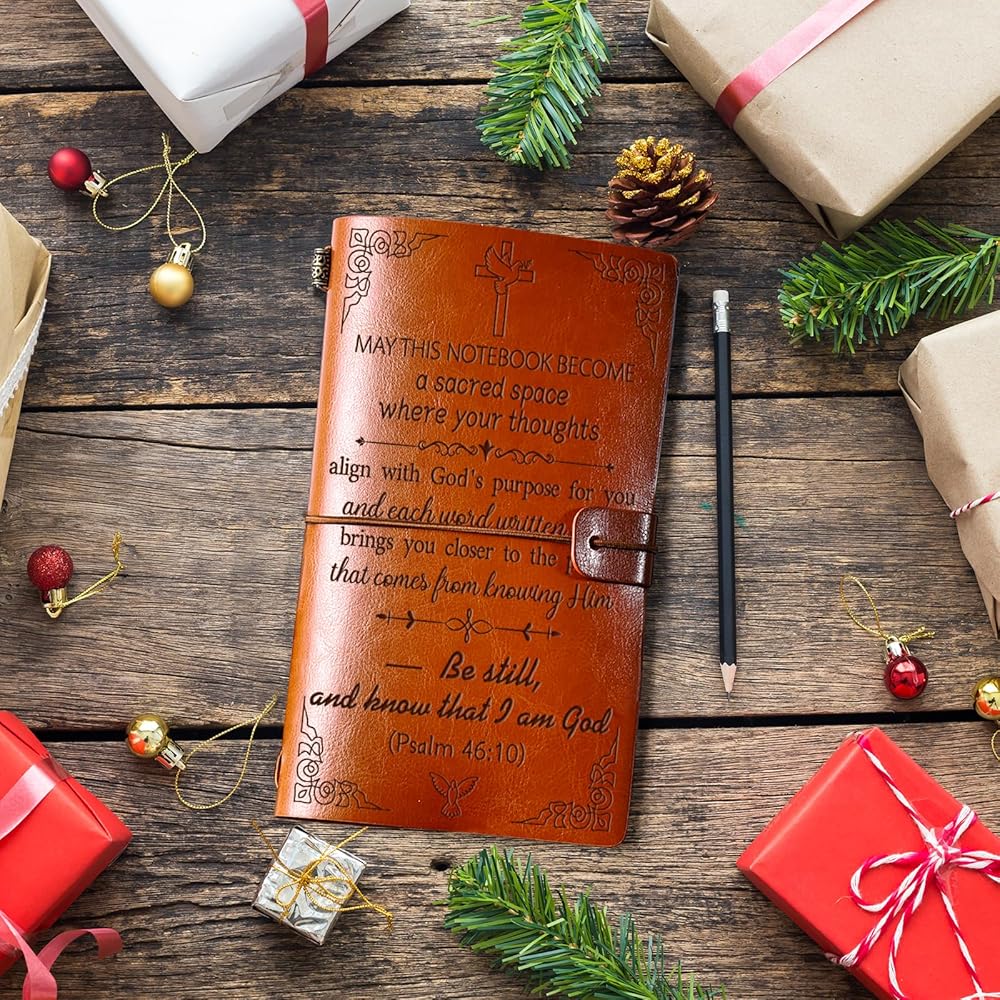 MAY THIS NOTEBOOK BECOME
a sacred space
where your thoughts
align with God's purpose for you
and each word written
brings you closer to the
that comes from knowing Him
— Be still,
and know that I am God
(Psalm 46:10)